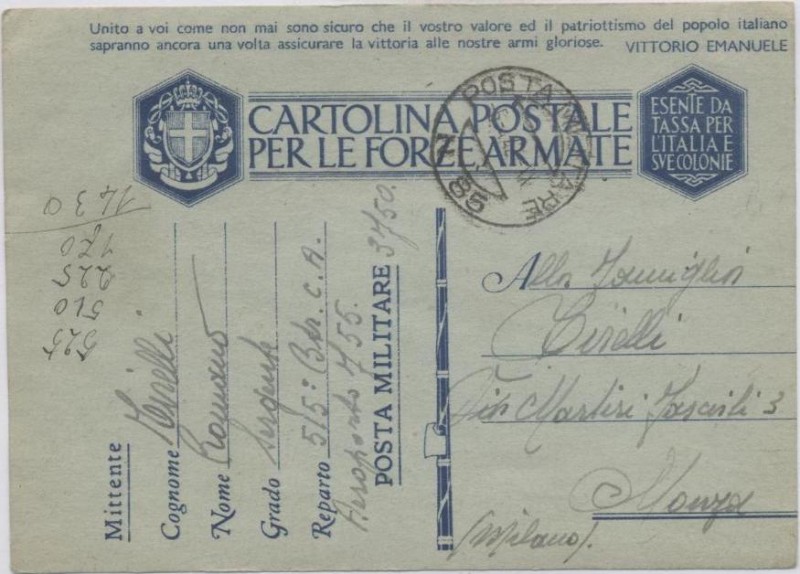 Unito a voi come non mai sono sicuro che il vostro valore ed il patriottismo del popolo italiano
sapranno ancora una volta assicurare la vittoria alle nostre armi gloriose. VITTORIO EMANUELE
CARTOLINA POSTALE
PER LE FORZE ARMATE
ESENTE DA
TASSA PER
L'ITALIA E
SVE COLONIE
POSTA MILITARE
N 86
Mittente
Cognome Zirelli
Nome Romano
Grado sergente
Reparto 515ª Btr. C.A.
Aeroporto 755.
POSTA MILITARE 3750.
Alla Famiglia
Cirelli
Via Martiri Fascisti 3
Monza
(Milano).
525
510
225
170
1430